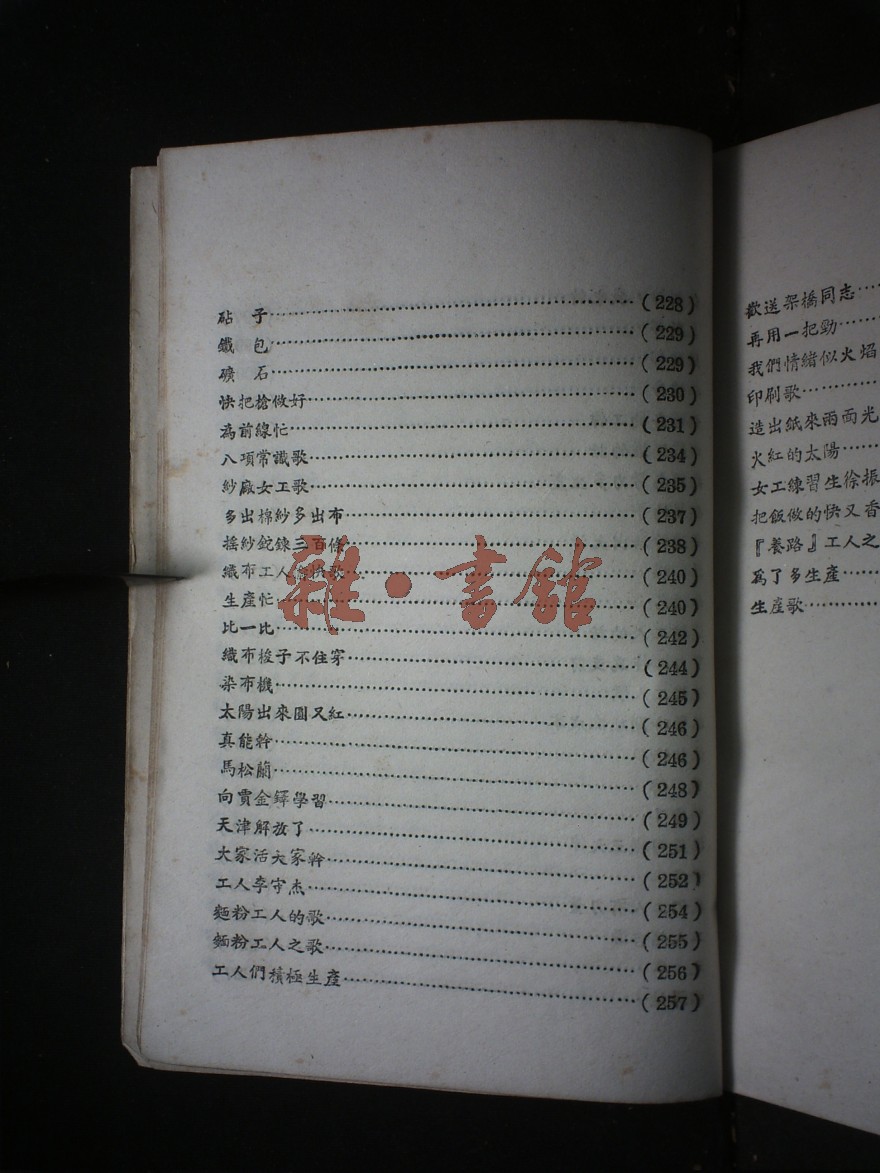 砧　子……(228)
鐵　包……(229)
礦　石……(229)
快把槍做好……(230)
為前線忙……(231)
八項常識歌……(234)
紗廠女工歌……(235)
多出棉紗多出布……(237)
搖紗錠鍊三百條……(238)
織布工人快歌……(240)
生產忙……(240)
比一比……(242)
織布梭子不住穿……(244)
染布機……(245)
太陽出來圓又紅……(246)
真能幹……(246)
馬松蘭……(248)
向賈金鐸學習……(249)
天津解放了……(251)
大家活大家幹……(252)
工人李守杰……(254)
麵粉工人的歌……(255)
麵粉工人之歌……(256)
工人們積極生產……(257)
雜·書館
歡送架橋同志……
再用一把勁……
我們情緒似火焰
印刷歌……
造出紙來兩面光
火紅的太陽……
女工練習生徐振
把飯做的快又香
『養路』工人之
爲了多生產……
生產歌……